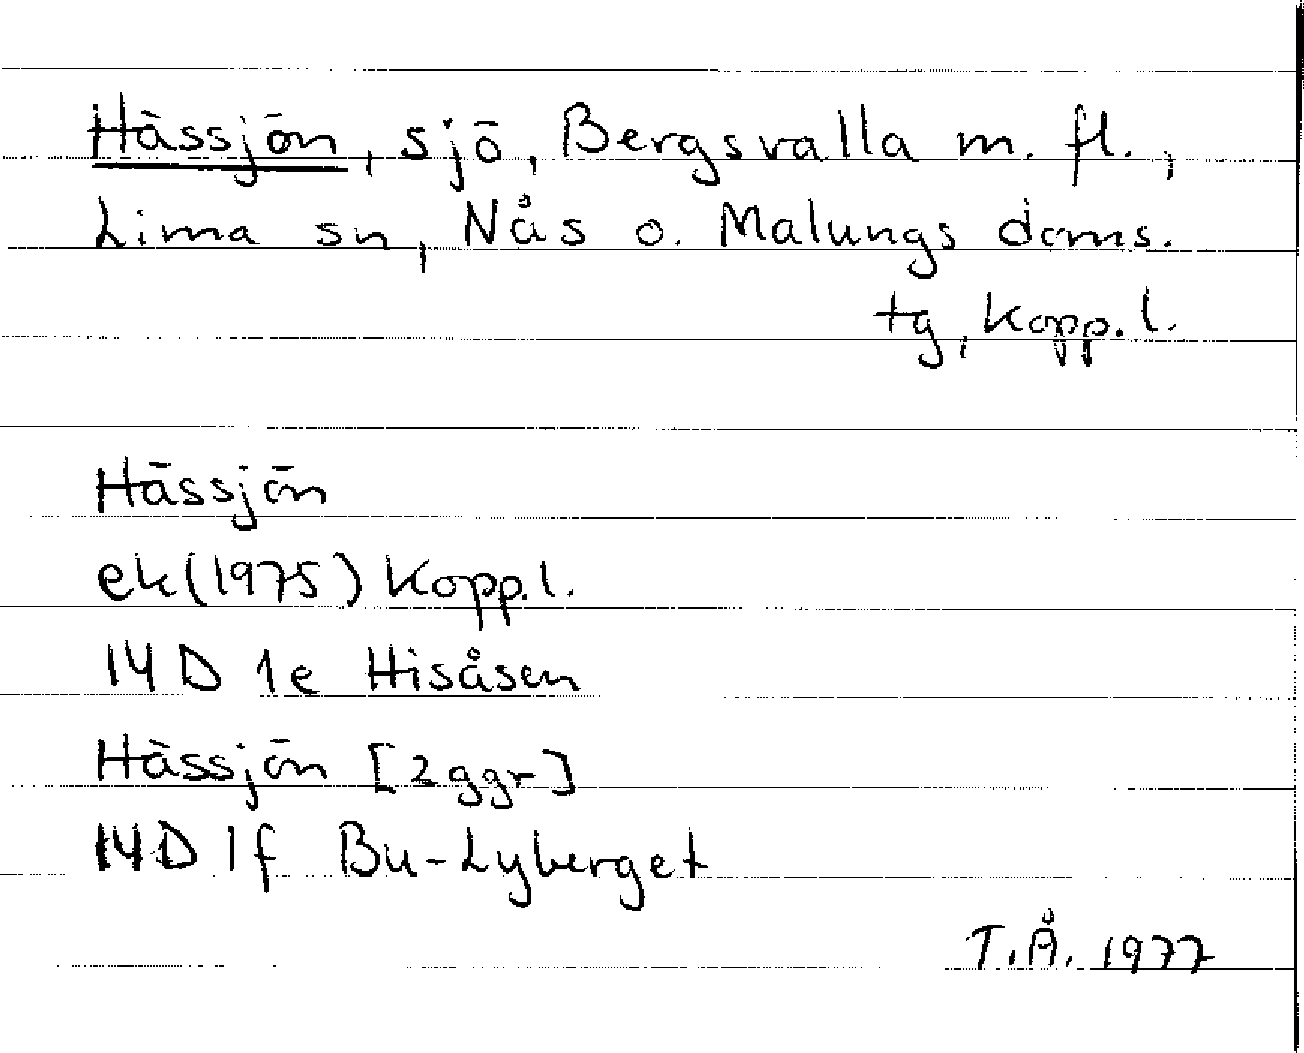 Hässjön, sjö, Bergsvalla m. fl.,
Lima sn, Nås o. Malungs doms.
tg, Kopp. l.
Hässjön
ek (1975) Kopp. l.
14 D 1e Hisåsen
Hässjön [2 ggr]
14 D 1f Bu-Lyberget
T.Å. 1977